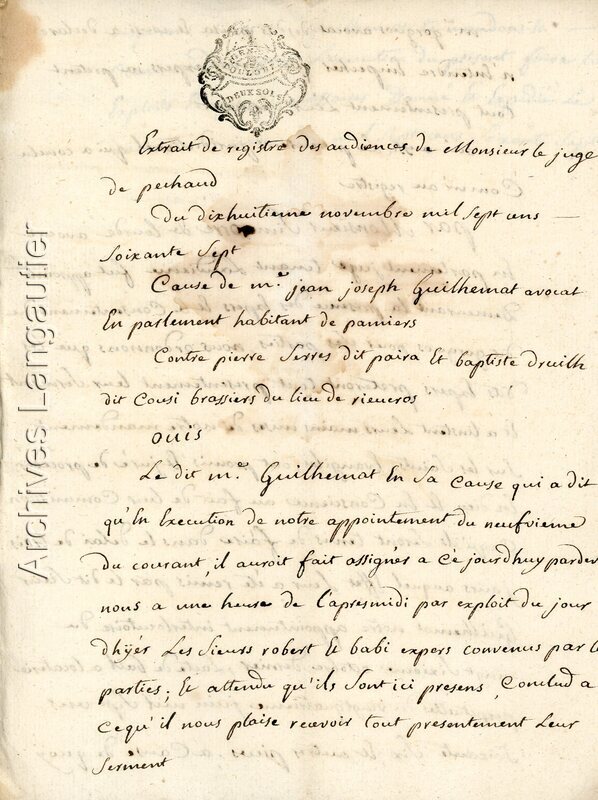 GEN
TOULOUSE
DEUX SOLS
Extrait de registre des audiences de Monsieur le juge
de pechaud
Du dixhuitieme novembre mil sept cens
soixante sept
Cause de m.e jean joseph Guilhemat avocat
En parlement habitant de pamiers
Contre pierre Serres dit paira Et baptiste druilh
dit Cousi brassiers du lieu de rieucros
OUIS
Le dit m.e Guilhemat En Sa Cause qui a dit
qu'En Execution de notre appointement du neufvieme
du courant, il auroit fait assigner a Ce jourdhuy pardev
nous a une heure de l'apresmidi par exploit du jour
dhyer Les Sieurs robert Et babi expers convenus par l
parties; Et attendu qu'ils Sont ici presens, Conclud a
Cequ'il nous plaise recevoir tout presentement Leur
Serment
Archives Langautier